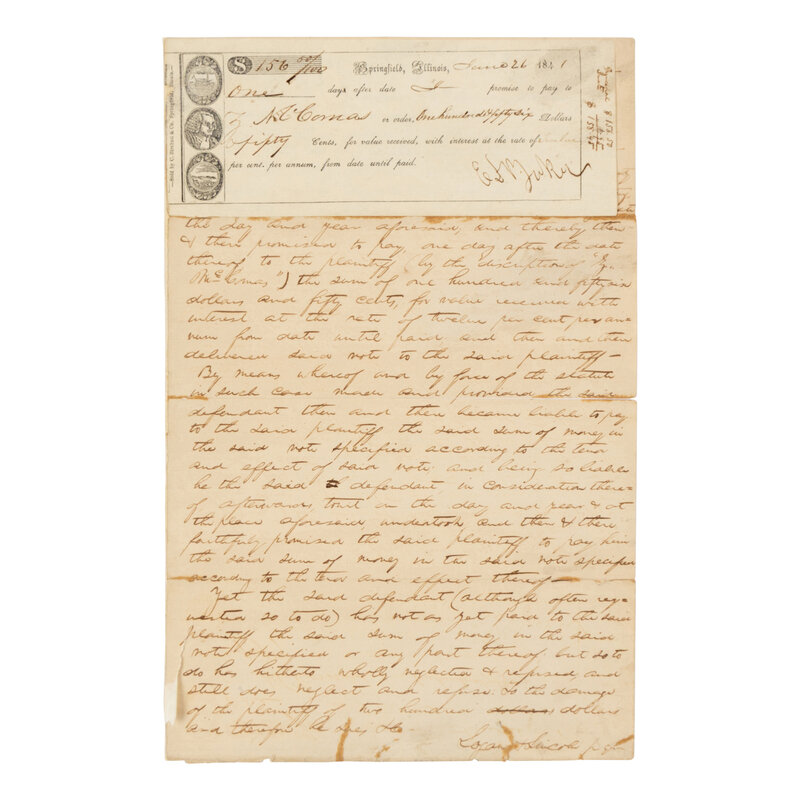 $156 50/100 Springfield, Illinois, June 26 1841
One days after date I promise to pay to
Z McComas or order, One hundred & fifty six Dollars
& fifty Cents, for value received, with interest at the rate of twelve
per cent. per annum, from date until paid.
E D Baker
the day and year aforesaid, and thereby then
& there promised to pay, one day after the date
thereof to the plaintiff (by the description of "Z.
McComas") the sum of one hundred and fifty six
dollars and fifty cents, for value received with
interest at the rate of twelve per cent per an-
num from date until paid and then and there
delivered said note to the said plaintiff—
By means whereof and by force of the statute
in such case made and provided the said
defendant then and there became liable to pay
to the said plaintiff the said sum of money in
the said note specified according to the tenor
and effect of said note and being so liable
he the said defendant, in consideration there-
of afterwards, towit on the day and year & at
the place aforesaid, undertook, and then & there
faithfully promised the said plaintiff to pay him
the said sum of money in the said note specified
according to the tenor and effect thereof—
Yet the said defendant (although often req-
uested so to do) has not as yet paid to the said
plaintiff the said sum of money in the said
note specified or any part thereof but so to
do has hitherto wholly neglected & refused and
still does neglect and refuse to the damage
of the plaintiff of two hundred dollars dollars
and therefore he sues, &c.
Logan & Lincoln p.q.